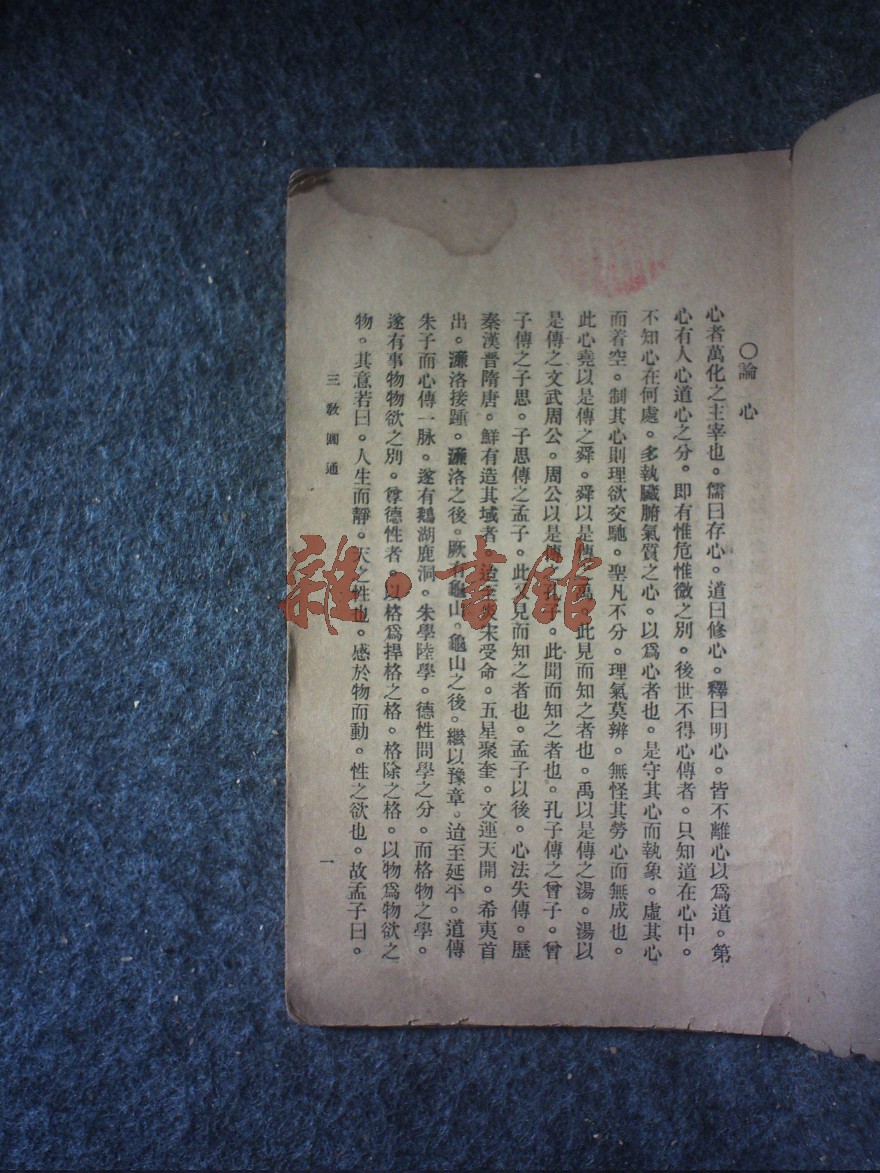 ○論 心
心者萬化之主宰也。儒曰存心。道曰修心。釋曰明心。皆不離心以爲道。第
心有人心道心之分。即有惟危惟微之別。後世不得心傳者。只知道在心中。
不知心在何處。多執臟腑氣質之心。以爲心者也。是守其心而執象。虛其心
而着空。制其心則理欲交馳。聖凡不分。理氣莫辨。無怪其勞心而無成也。
此心堯以是傳之舜。舜以是傳之禹。此見而知之者也。禹以是傳之湯。湯以
是傳之文武周公。周公以是傳之孔子。此聞而知之者也。孔子傳之曾子。曾
子傳之子思。子思傳之孟子。此又見而知之者也。孟子以後。心法失傳。歷
秦漢晉隋唐。鮮有造其域者。迨至炎宋受命。五星聚奎。文運天開。希夷首
出。濂洛接踵。濂洛之後。厥有龜山。龜山之後。繼以豫章。迨至延平。道傳
朱子而心傳一脉。遂有鵝湖鹿洞。朱學陸學。德性問學之分。而格物之學。
遂有事物物欲之別。尊德性者。以格爲捍格之格。格除之格。以物爲物欲之
物。其意若曰。人生而靜。天之性也。感於物而動。性之欲也。故孟子曰。
三教圓通
一
雜·書館